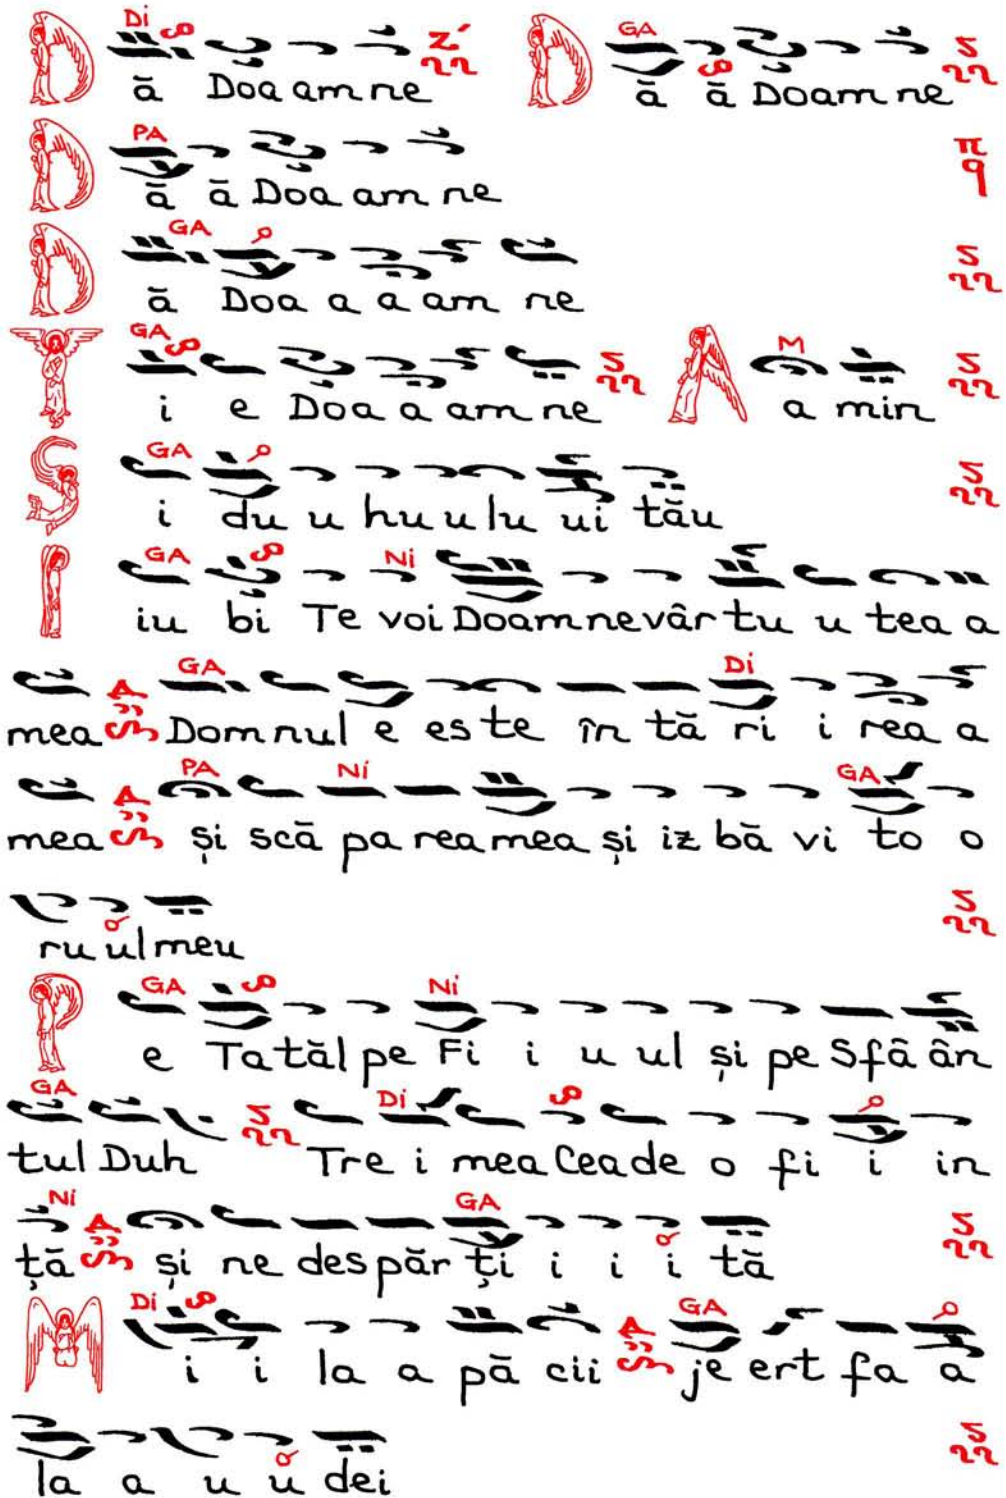 Di Z΄ GA
Dă Doa am ne Dă ă Doam ne
PA π q
Dă ă Doa am ne
GA
Dă Doa a a am ne
GA M
Ți e Doa a am ne A a min
GA
Și du u hu u lu ui tău
GA Ni
Iiu bi Te voi Doam ne vâr tu u tea a
GA Di
mea Dom nul e es te în tă ri i rea a
PA Ni GA
mea și scă pa rea mea și iz bă vi to o
ru ul meu
GA Ni
Pe Ta tăl pe Fi i u ul și pe Sfâ ân
GA Di
tul Duh Tre i mea Cea de o fi i in
Ni GA
ță și ne des păr ți i i i tă
Di GA
Mi i la a pă cii je ert fa a
la a u u dei